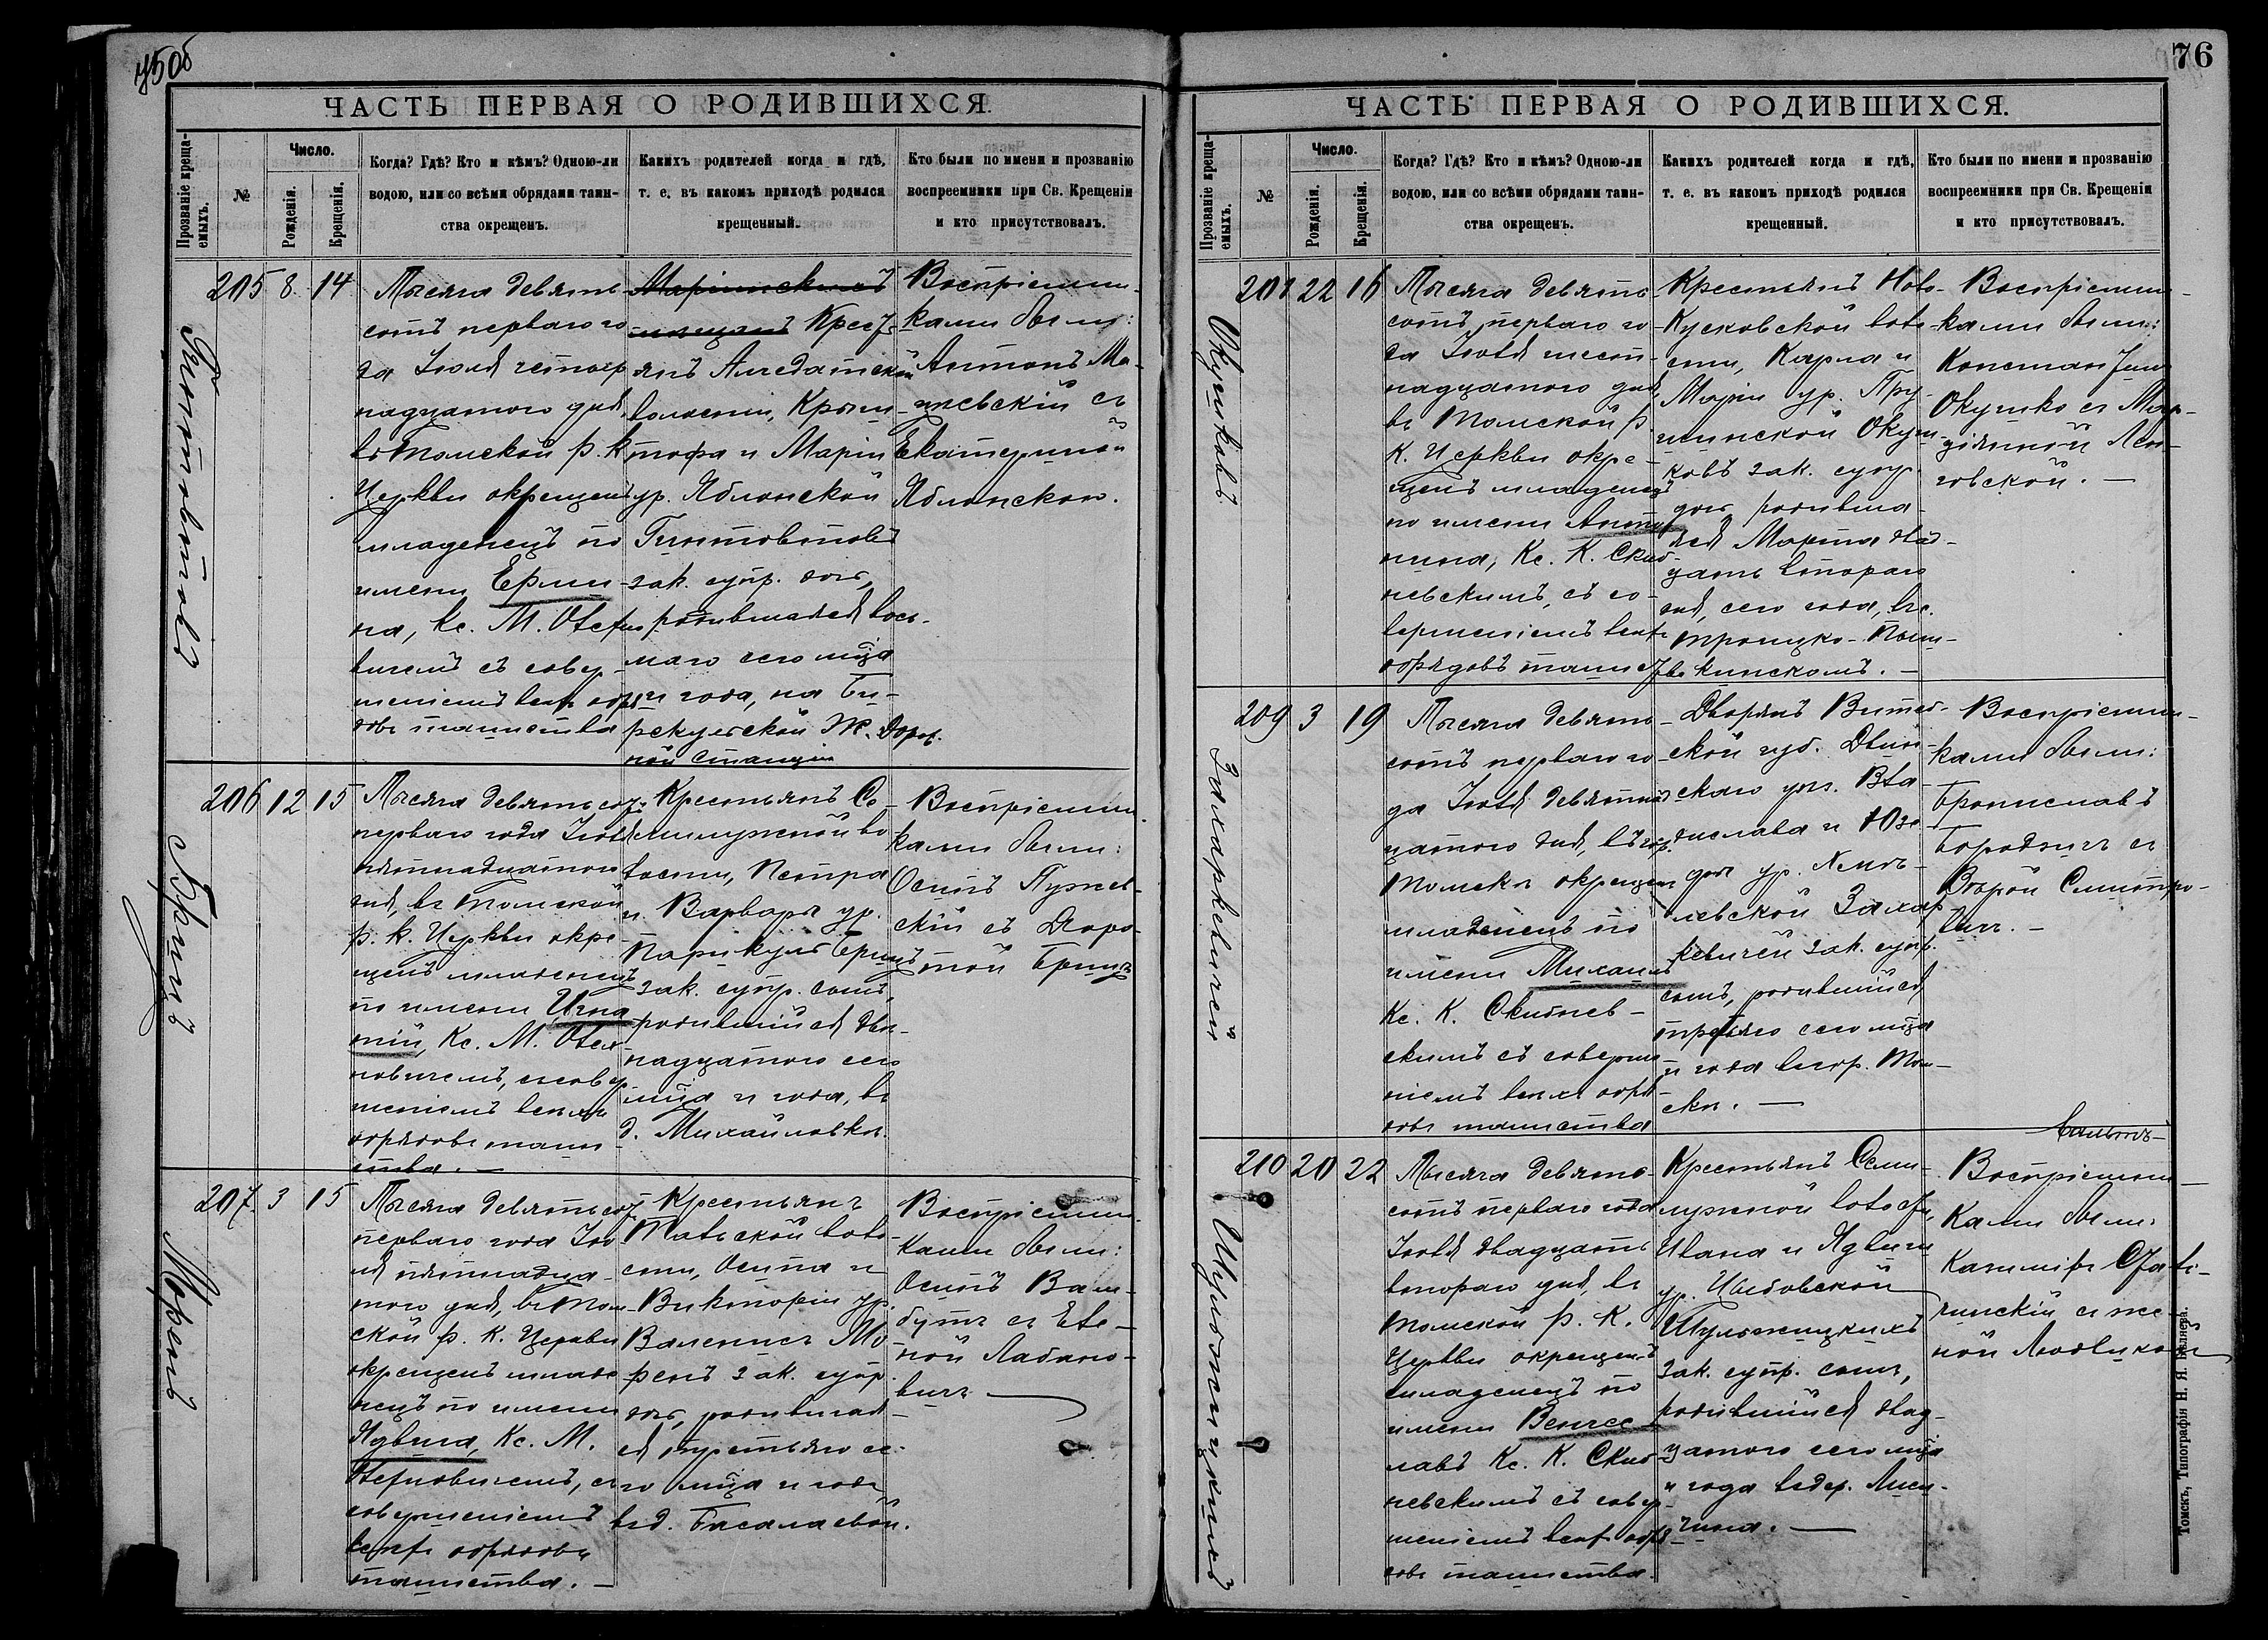 75об
ЧАСТЬ ПЕРВАЯ О РОДИВШИХСЯ.
Прозваніе креща-
емыхъ.
№
Число.
Рожденія.
Крещенія.
Когда? Гдѣ? Кто и кѣмъ? Одною-ли
водою, или со всѣми обрядами таин-
ства окрещенъ.
Какихъ родителей когда и гдѣ,
т. е. въ какомъ приходѣ родился
крещенный.
Кто были по имени и прозванію
воспреемники при Св. Крещеніи
и кто присутствовалъ.
Гинтовтовъ
205 8 14
Тысяча девять
сотъ перваго го
да Іюля четыр
надцатого дня,
въ Томской р. к
Церкви окрещенъ
младенецъ по
имени Ерми-
на, Кс. М.
вичемъ съ совер-
шеніемъ всѣхъ обря
довъ таинства
Маріинскихъ
мѣщанъ Крест
янъ Алчедатской
волости, Криш
тофа и Маріи
ур. Яблонской
Гинтовтовъ
зак. супр. дочь,
родившаяся вось-
маго сего мца
и года, на Би-
рекульской Ж. Дорож.
ной станціи
Воспріемни-
ками были:
Антонъ Ма-
цѣевскій съ
Екатериной
Яблонскою.
Бринъ
206 12 15
Тысяча девятьсот
перваго года Іюля
пятнадцатого
дня, въ Томской
р. к. Церкви окре-
щенъ младенецъ
по имени Игна
тій, Кс. М.
новичемъ, съ совер
шеніемъ всѣхъ
обрядовъ таин
ства. —
Крестьянъ Се-
милужной во
лости, Петра
и Варвары ур.
Парикуль Бринъ
зак. супр. сынъ,
родившійся двѣ-
надцатого сего
мца и года, въ
д. Михайловкѣ.
Воспріемни-
ками были:
Осипъ Пужев-
скій съ Доро-
той Бринъ
Моренъ
207. 3 15
Тысяча девятьсот
перваго года Ію
ля пятнадца-
того дня, въ Том-
ской р. к. Церкви
окрещенъ младе
нецъ по имени
Ядвига, Кс. М.
съ
совершеніемъ
всѣхъ обрядовъ
таинства. —
Крестьянъ
Тавской воло-
сти, Осипа и
Викторіи ур.
Валенисъ Мо
ренъ зак. супр
дочь, родившая-
ся третьяго се-
го мца и года
въ д. Басалаевой.
Воспріемни-
ками были:
Осипъ Вал-
бутъ съ Еле-
ной Лабано-
вичъ —
76
ЧАСТЬ ПЕРВАЯ О РОДИВШИХСЯ.
Прозваніе креща-
емыхъ.
№
Число.
Рожденія.
Крещенія.
Когда? Гдѣ? Кто и кѣмъ? Одною-ли
водою, или со всѣми обрядами таин-
ства окрещенъ.
Какихъ родителей когда и гдѣ,
т. е. въ какомъ приходѣ родился
крещенный.
Кто были по имени и прозванію
воспреемники при Св. Крещеніи
и кто присутствовалъ.
Окушковъ
208 22 16
Тысяча девять-
сотъ перваго го-
да Іюля шест-
надцатого дня,
въ Томской р.
К. Церкви окре-
щенъ младенецъ
по имени Анто
нина, Кс. К. Скиб-
невскимъ, съ со-
вершеніемъ всѣхъ
обрядовъ таинст
Крестьянъ Ново-
Кусковской воло-
сти, Карла и
Маріи ур. Пру-
шинской Окуш-
ковъ зак. супр.
дочь, родивша-
яся Марта двад-
цать втораго
дня, сего года, въ с.
Троицко-
Воспріемни-
ками были:
Константинъ
Окушко съ Мар-
цѣлиной Лен-
говской. —
Захаркевичей
209 3 19
Тысяча девять-
сотъ перваго го-
да Іюля девятнад
цатого дня, въ гор.
Томскѣ окрещенъ
младенецъ по
имени Михаилъ
Кс. К. Скибнев-
скимъ съ соверше
ніемъ всѣхъ обря
довъ таинства
Дворянъ Витеб-
ской губ. Двин-
скаго уѣз. Вла-
дислава и Юзе-
фы ур. Хмѣ-
левской Захар
кевичей зак. супр.
сынъ, родившійся
третьяго сего мца
и года въ гор. Том-
скѣ. —
Воспріемни-
ками были:
Брониславъ
Бородзичъ съ
Вѣрой
Шульжицкихъ
210 20 22
Тысяча девять-
сотъ перваго года
Іюля двадцать
втораго дня, въ
Томской р. К.
Церкви окрещенъ
младенецъ по
имени Венчес-
лавъ Кс. К. Скиб-
невскимъ съ совер-
шеніемъ всѣхъ обря-
довъ таинства.
Крестьянъ Семи-
лужной волости,
Ивана и Ядвиги
ур. Цыбовской
Шульжицкихъ
зак. супр. сынъ,
родившійся двад-
цатого сего мца
и года въ дер. Лиси-
чина. —
Воспріемни-
ками были:
Казиміръ
съ же
ной Людвикой
Томскъ, Типографія Н. Я. Бѣляева.